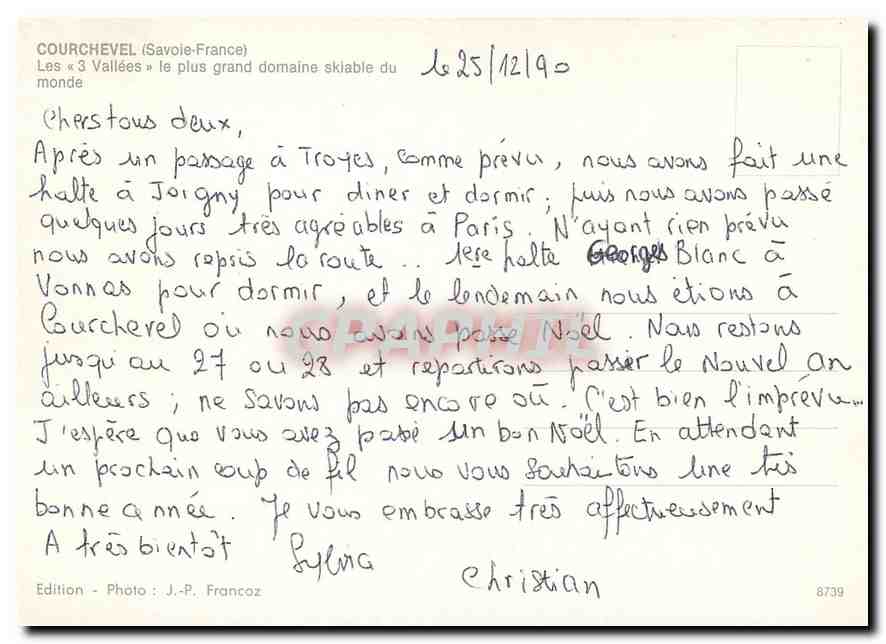 COURCHEVEL (Savoie-France)
Les « 3 Vallées » le plus grand domaine skiable du
monde
le 25/12/90
Chers tous deux,
Après un passage à Troyes, comme prévu, nous avons fait une
halte à Joigny pour diner et dormir ; puis nous avons passé
quelques jours très agréables à Paris. N'ayant rien prévu
nous avons repris la route .. 1ere halte Georges Blanc à
Vonnas pour dormir, et le lendemain nous étions à
Courchevel où nous avons passé Noël. Nous restons
jusqu'au 27 ou 28 et repartirons passer le Nouvel An
ailleurs ; ne savons pas encore où. C'est bien l'imprévu...
J'espère que vous avez passé un bon Noël. En attendant
un prochain coup de fil nous vous souhaitons une très
bonne année. Je vous embrasse très affectueusement
A très bientôt
Sylvia
Christian
Edition - Photo : J.-P. Francoz
8739